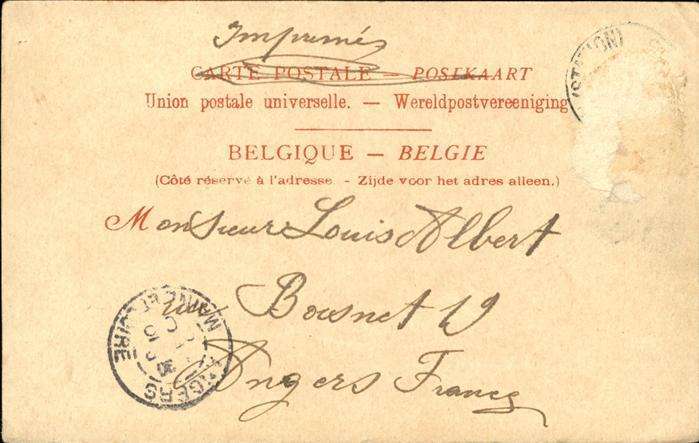 Imprimés
CARTE POSTALE — POSTKAART
Union postale universelle. — Wereldpostvereeniging
(STATION)
BELGIQUE — BELGIE
(Côté réservé à l'adresse. - Zijde voor het adres alleen.)
Monsieur Louis Albert
rue Bosnet 19
Angers France
ANGERS
MAINE ET LOIRE